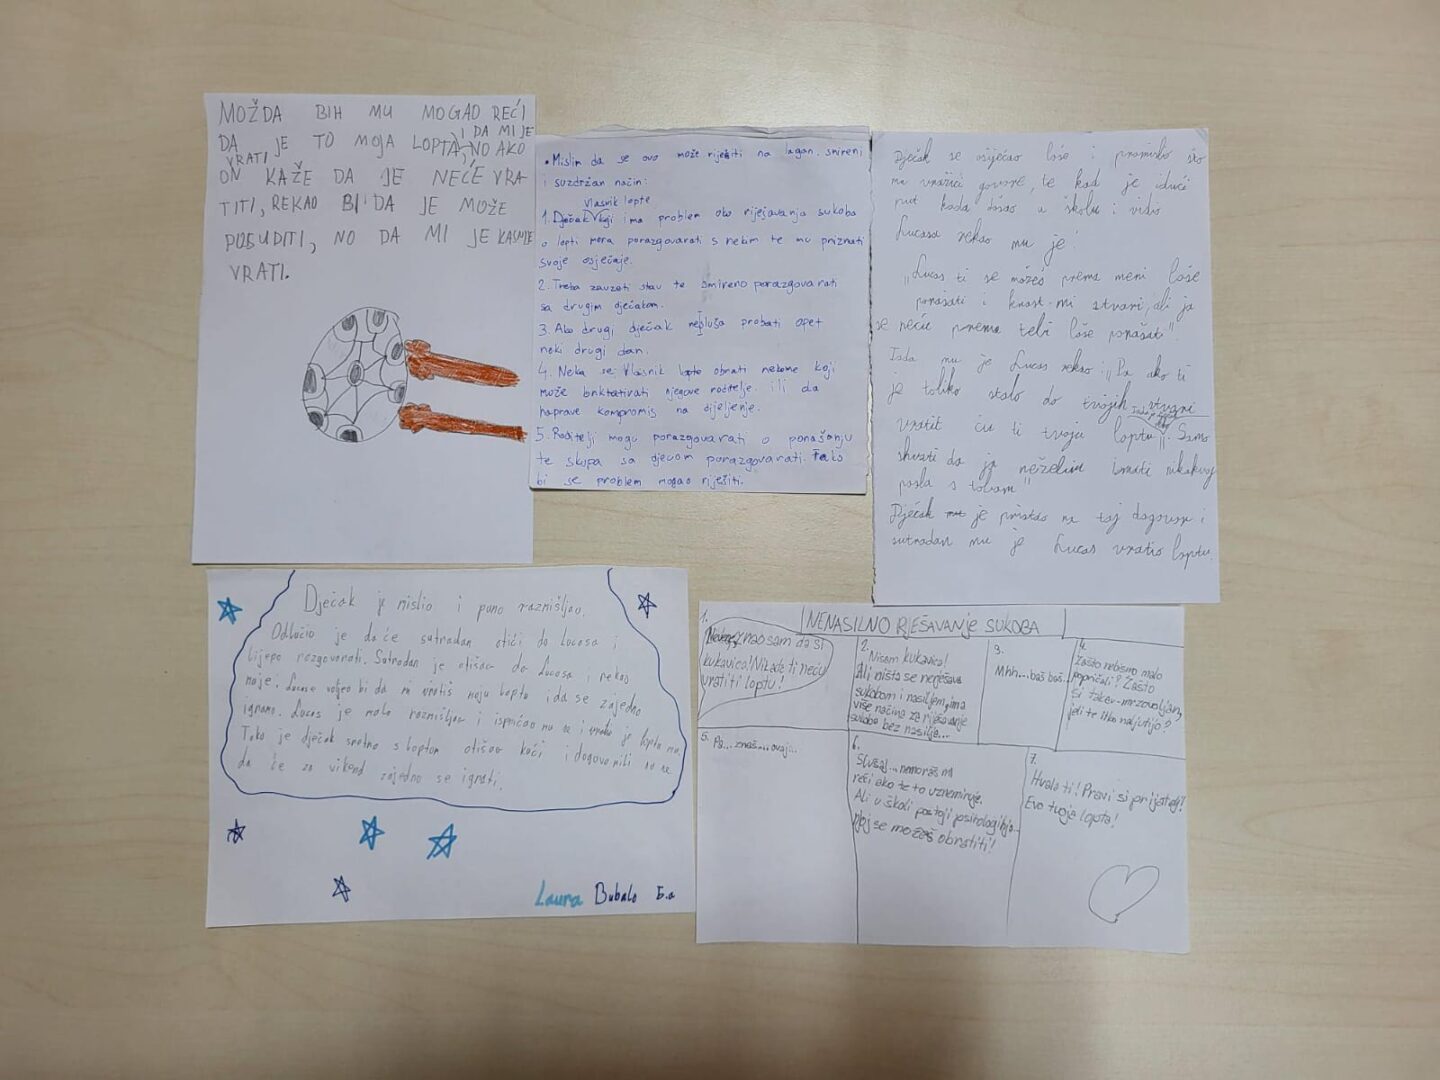 MOŽDA BIH MU MOGAO REĆI
DA JE TO MOJA LOPTA, I DA MI JE
VRATI, NO AKO
ON KAŽE DA JE NEĆE VRA-
TITI, REKAO BI DA JE MOŽE
POSUDITI, NO DA MI JE KASNIJE
VRATI.
• Mislim da se ovo može riješiti na lagan, smireni
i suzdržan način:
Vlasnik lopte
1. Dječak koji ima problem oko rješavanja sukoba
o lopti mora porazgovarati s nekim te mu priznati
svoje osjećaje.
2. Treba zauzeti stav te smireno porazgovarati
sa drugim dječakom.
3. Ako drugi dječak nesluša probati opet
neki drugi dan.
4. Neka se Vlasnik lopte obrati nekome koji
može kontaktirati njegove roditelje. ili da
naprave kompromis na dijeljenje.
5. Roditelji mogu porazgovarati o ponašanju
te skupa sa djecom porazgovarati. Tako
bi se problem mogao riješiti.
Dječak se osjećao loše i promislio što
mu vršnjaci govore, te kad je idući
put kada došao u školu i vidio
Lucasa rekao mu je:
„Lucas ti se možeš prema meni loše
ponašati i krast mi stvari, ali ja
se neću prema tebi loše ponašati".
Tada mu je Lucas rekao: „Pa ako ti
je toliko stalo do tvojih stvari
vratit ću ti tvoju loptu". Samo
shvati da ja neželim imati nikakvog
posla s tobom"
Dječak je pristao na taj dogovor i
sutradan mu je Lucas vratio loptu.
Dječak je mislio i puno razmišljao.
Odlučio je da će sutradan otići do Lucasa i
lijepo razgovarati. Sutradan je otišao do Lucasa i rekao
Lucase volio bi da mi vratiš moju loptu i da se zajedno
igramo. Lucas je malo razmišljao i ispričao mu se i vratio je loptu mu.
Tako je dječak sretno s loptom otišao kući i dogovorili su se
da će za vikend zajedno se igrati.
Laura Bubalo 5.a
NENASILNO RJEŠAVANJE SUKOBA
1.
znao sam da si
kukavica! Nikada ti neću
vratiti loptu!
2. Nisam kukavica!
Ali ništa se nerješava
sukobom i nasiljem, ima
više načina za rješavanje
sukoba bez nasilja...
3.
Mhh....baš baš..
4.
Zašto nebismo malo
popričali? Zašto
si takav mrzovoljan,
jeli te itko naljutijo?
5. Pa... znaš.... ovaj...
6.
Slušaj... nemoraš mi
reći ako te to uznemiruje.
Ali u školi postoji psihologinja
njoj se možeš obratiti!
7.
Hvala ti! Pravi si prijatelj!
Evo tvoja lopta!